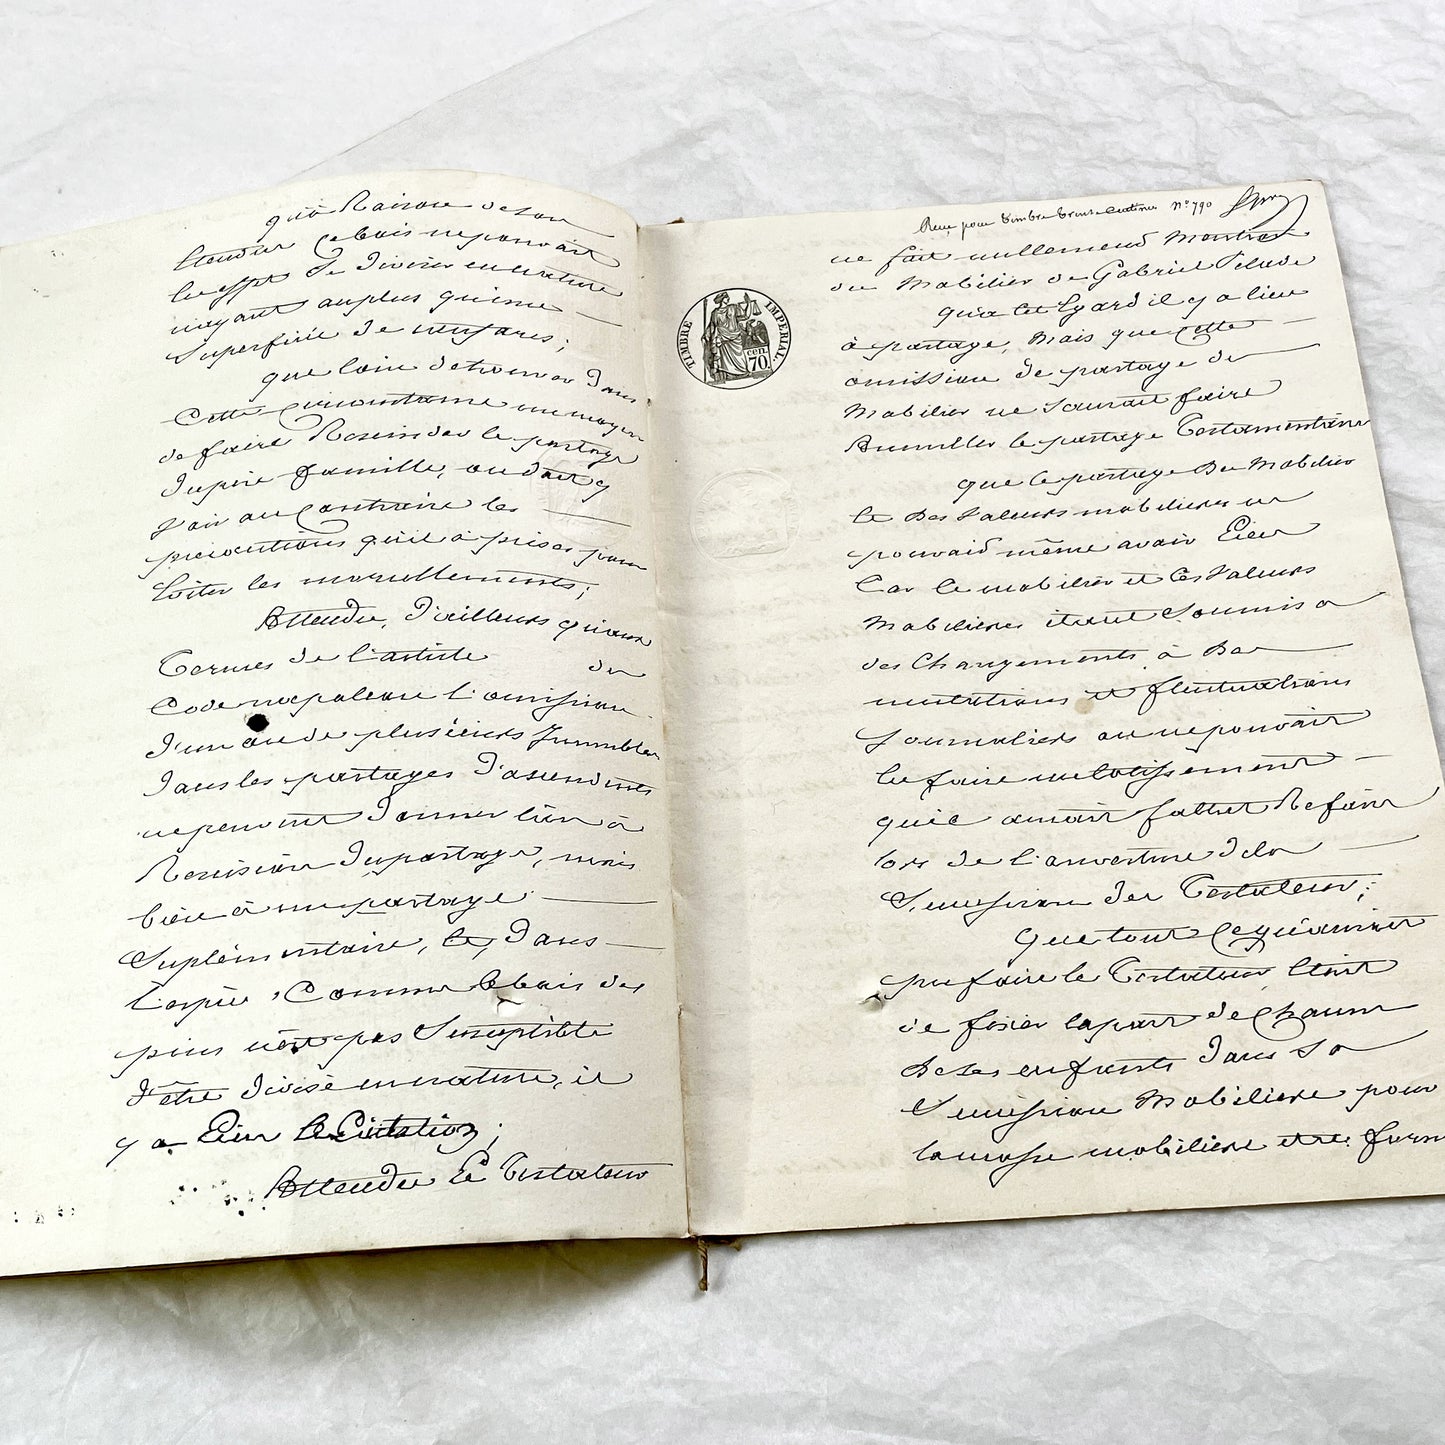 qu'à Raison de son
étendue ce bois ne pouvait
en effet se diviser en nature
n'ayant au plus qu'une
Superficie de neuf ares;
que loin de trouver dans
Cette Circonstance un moyen
de faire Rescinder le partage
du père famille, on doit y
voir au Contraire les
précautions qu'il a prises pour
éviter les morcellements;
Attendu, d'ailleurs qu'aux
Termes de l'article du
Code napoléon l'omission
d'un ou de plusieurs Immeubles
dans les partages d'ascendants
ne peuvent donner lieu à
Rescision du partage, mais
bien à un partage
Suplémentaire, et, dans
l'espèce, Comme le bois des
pins n'est pas Susceptible
d'être divisé en nature, il
y a lieu à licitation;
Attendu que le Testateur
Reçu pour timbre trente centimes N° 790
ne fait nullement mention
du Mobilier de Gabriel
qu'à cet égard il y a lieu
à partage, Mais que cette
omission de partage du
Mobilier ne saurait faire
Annuller le partage Testamentaire
que le partage du Mobilier
et des valeurs mobilières ne
pouvait même avoir lieu
Car le mobilier et les valeurs
Mobilières étant soumis à
des Changements à des
mutations et fluctuations
journaliers on ne pouvait
en faire un lotissement
qu'il aurait fallut Refaire
lors de l'ouverture de la
Succession du Testateur;
Que tout ce qu'aurait
pu faire le Testateur était
de fixer la part de Chacun
de ses enfants dans sa
Succession Mobilière pour
la masse mobilière être